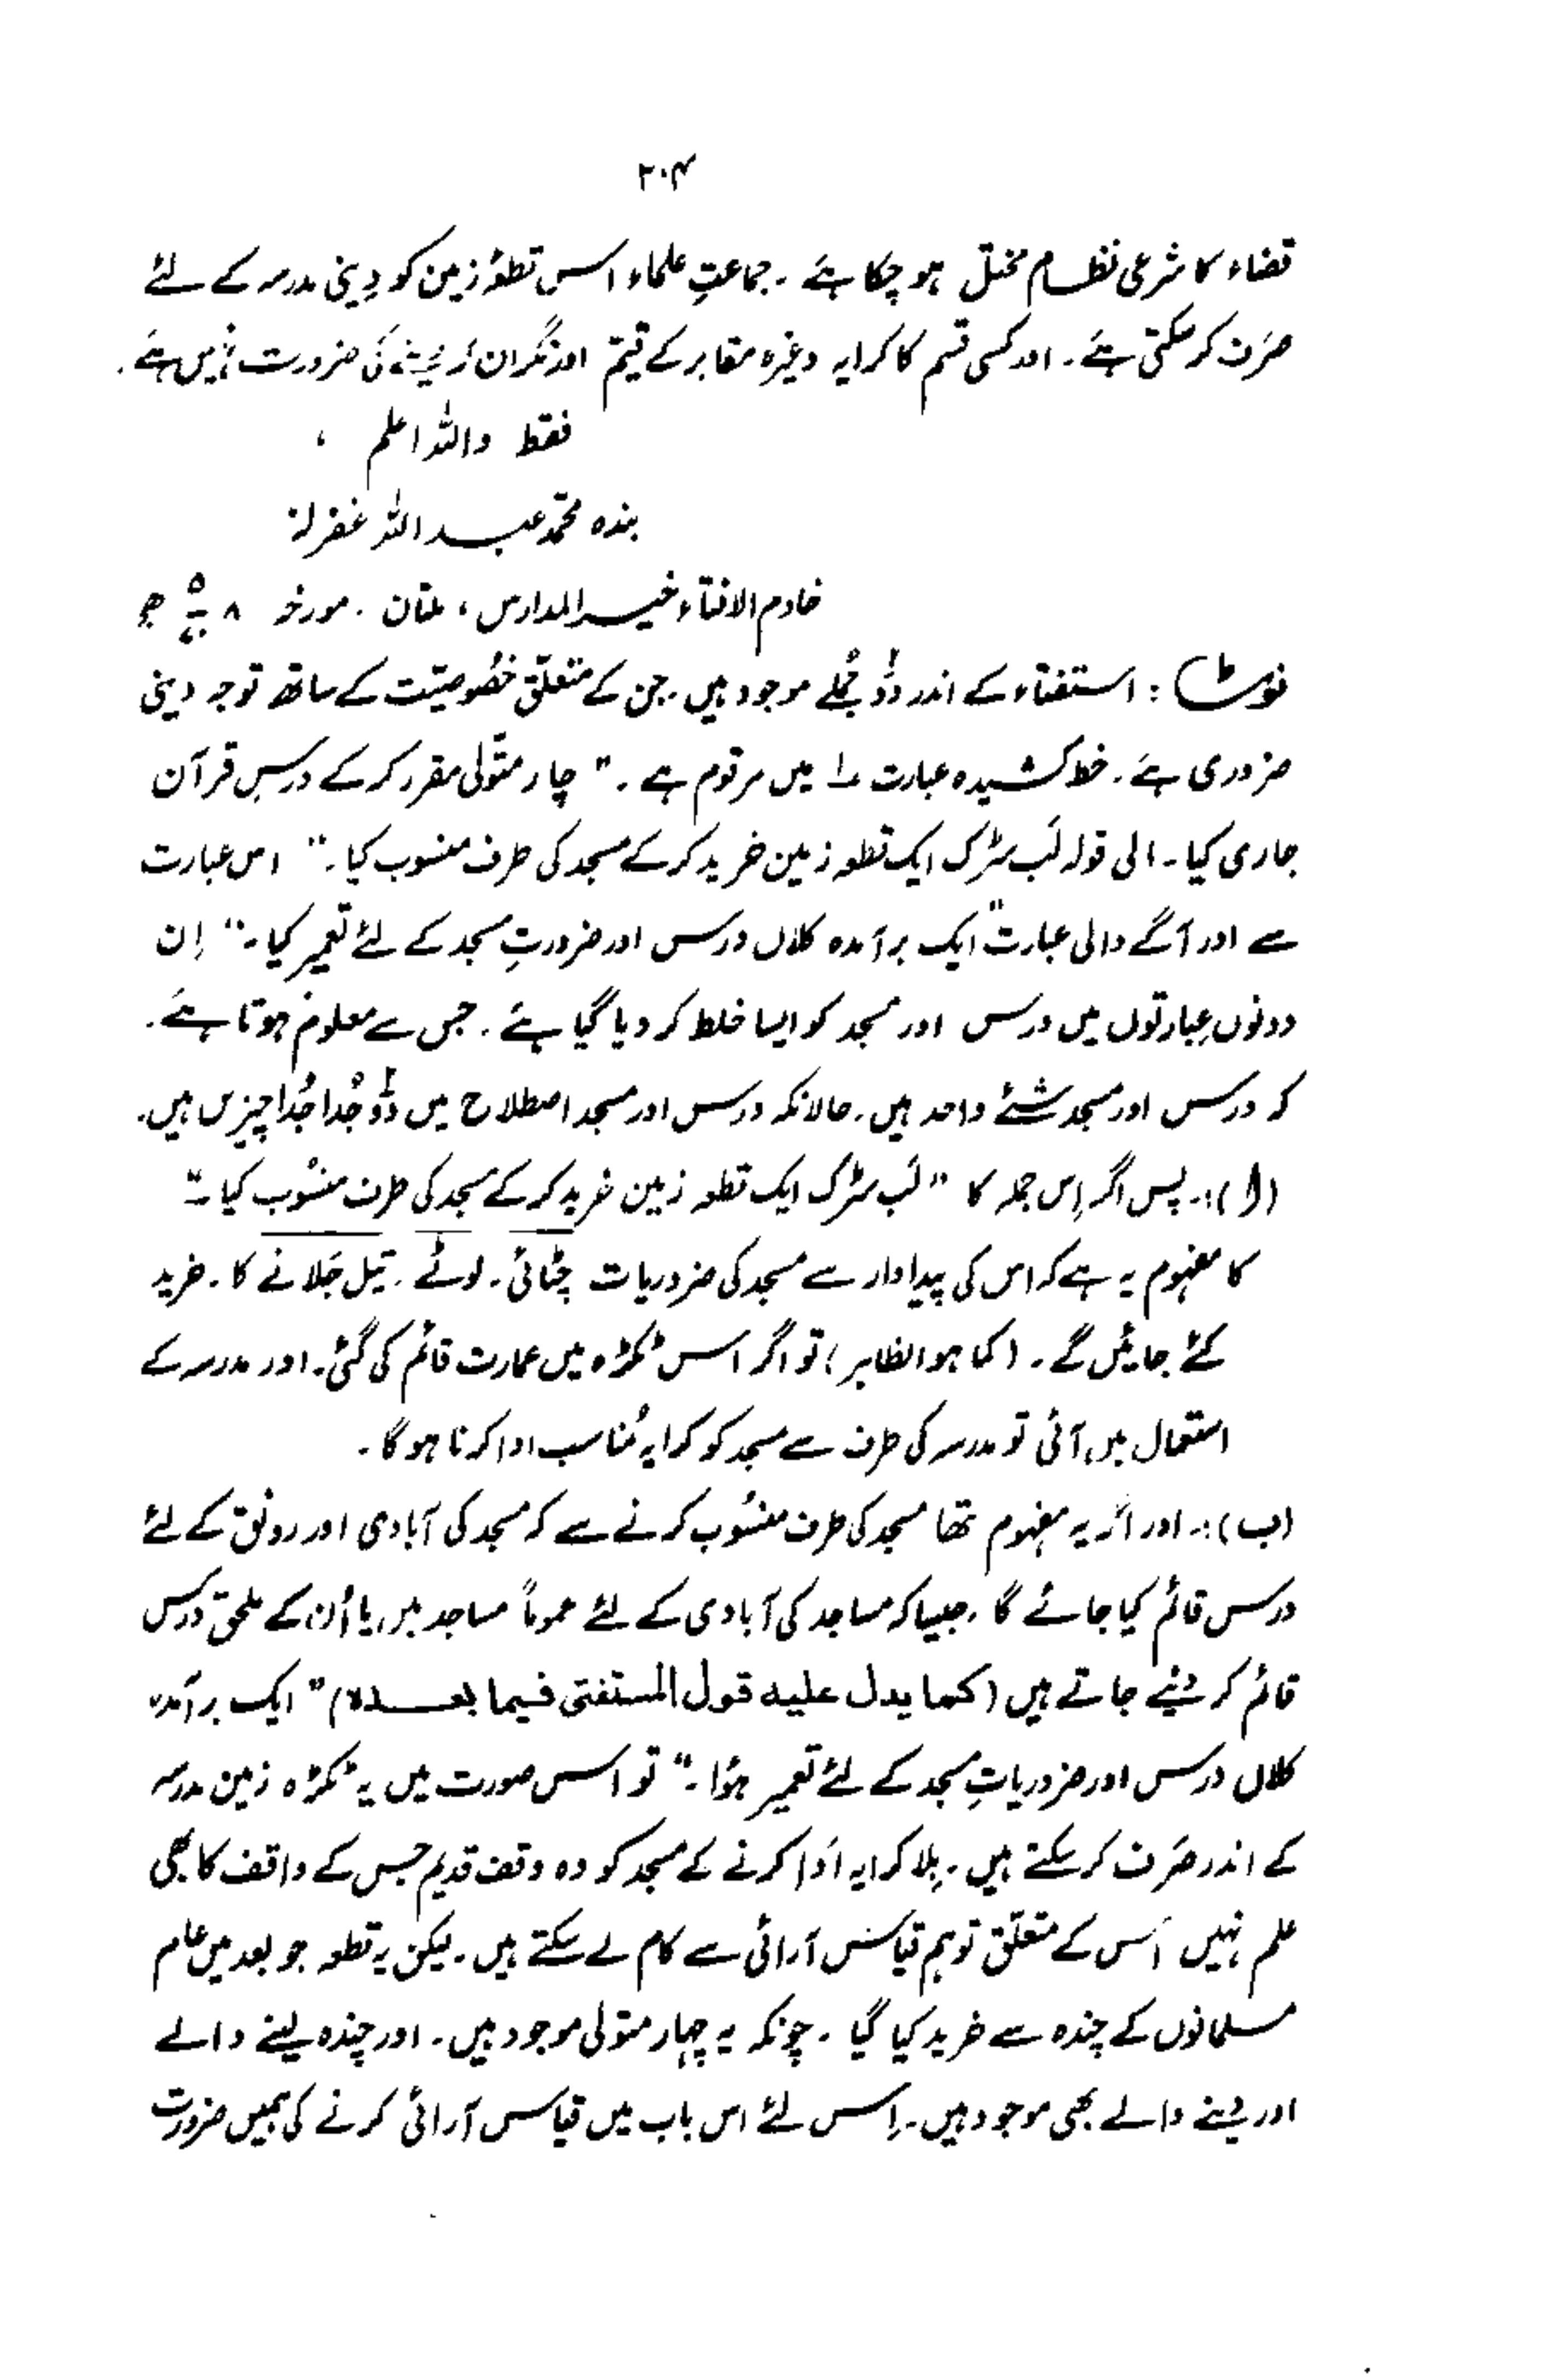 ۲۰۴
قضاء کا شرعی نظام مختل ہو چکا ہے۔ جماعتِ علماء اس قطعۂ زمین کو دِینی مدرسہ کے لئے
صَرف کر سکتی ہے۔ اور کسی قسم کا کرایہ وغیرہ مقابر کے قیّم اور نگران کو دینے کی ضرورت نہیں ہے۔
فقط واللہ اعلم ،
بندہ محمّد عبد اللہ غفرلہٗ
خادم الافتاء خیر المدارس، ملتان۔ مورخہ ۸
نوٹ : استفتاء کے اندر دوؔ جُملے موجود ہیں۔ جن کے متعلّق خصُوصیّت کے ساتھ توجہ دینی
ضروری ہے۔ خط کشیدہ عبارت ۱ میں مرقوم ہے۔ "چار متولّی مقرر کر کے درسِ قرآن
جاری کیا۔ الی قولہ لَبِ سڑک ایک قطعہ زمین خرید کر کے مسجد کی طرف منسوب کیا۔" اس عبارت
سے اور آگے والی عبارت "ایک برآمدہ کلاں درس اور ضرورتِ مسجد کے لئے تعمیر کیا۔" اِن
دونوں عبارتوں میں درس اور مسجد کو ایسا خلط کر دیا گیا ہے۔ جس سے معلوم ہوتا ہے۔
کہ درس اور مسجد شئے واحد ہیں۔ حالانکہ درس اور مسجد اصطلاح میں دوؔ جُدا جُدا چیزیں ہیں۔
(ا)،۔ پس اگر اِس جملہ کا "لَبِ سڑک ایک قطعہ زمین خرید کر کے مسجد کی طرف منسُوب کیا۔"
کا مفہوم یہ ہے کہ اس کی پیداوار سے مسجد کی ضروریات چٹائی۔ لوٹے۔ تیل جَلانے کا۔ خرید
کئے جائیں گے۔ (کما ہو الظاہر) تو اگر اس ٹکڑہ میں عمارت قائم کی گئی۔ اور مدرسہ کے
استعمال میں آئی تو مدرسہ کی طرف سے مسجد کو کرایہ مُناسب ادا کرنا ہو گا۔
(ب)،۔ اور اگر یہ مفہوم تھا مسجد کی طرف منسُوب کرنے سے کہ مسجد کی آبادی اور رونق کے لئے
درس قائم کیا جائے گا۔ جیسا کہ مساجد کی آبادی کے لئے عموماً مساجد میں یا اُن کے ملحق درس
قائم کر دیئے جاتے ہیں (کما یدل علیہ قول المستفتی فیما بعدہ) "ایک برآمدہ
کلاں درس اور ضروریاتِ مسجد کے لئے تعمیر ہؤا۔" تو اس صورت میں یہ ٹکڑہ زمین مدرسہ
کے اندر صَرف کر سکتے ہیں۔ بِلا کرایہ اَدا کرنے کے مسجد کو وہ وقف قدیم جس کے واقف کا بھی
علم نہیں اُس کے متعلّق تو ہم قیاس آرائی سے کام لے سکتے ہیں۔ لیکن یہ قطعہ جو بعد میں عام
مسلمانوں کے چندہ سے خرید کیا گیا۔ چونکہ یہ چہار متولی موجود ہیں۔ اور چندہ لینے والے
اور دینے والے بھی موجود ہیں۔ اِس لئے اس باب میں قیاس آرائی کرنے کی ہمیں ضرورت